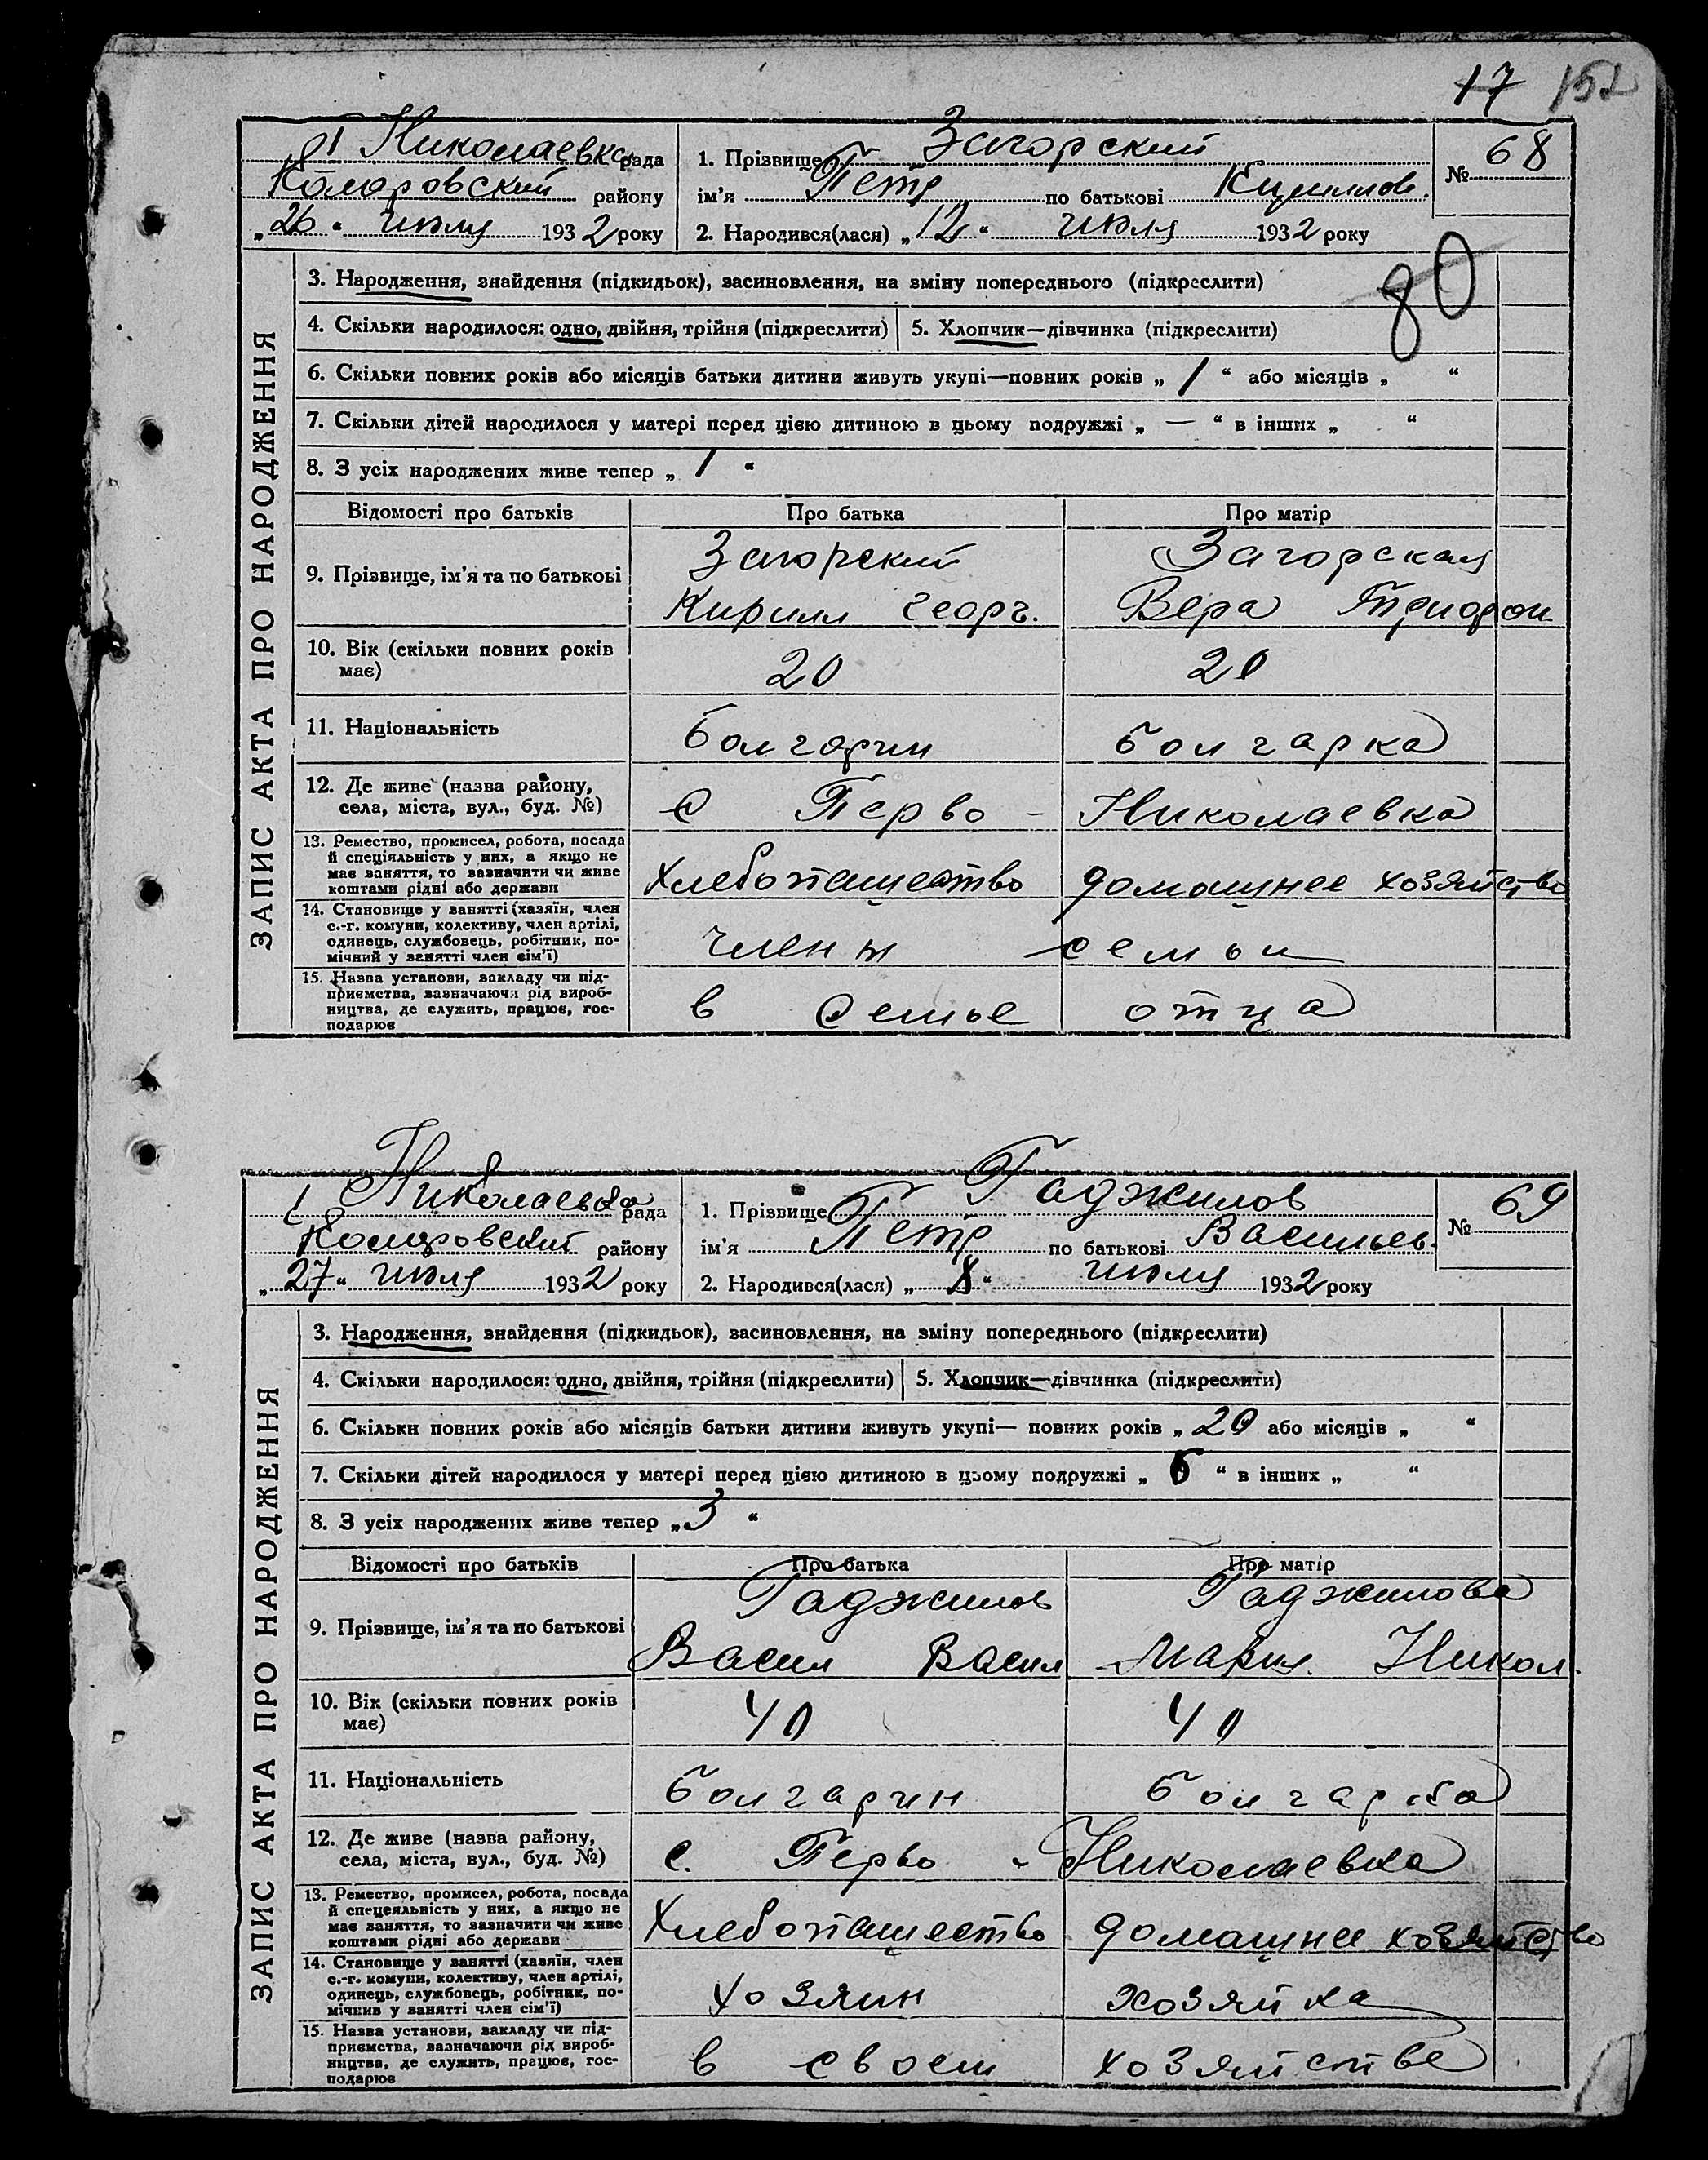 17 152
1 Николаевка рада
Комаровский району
„26“ июля 1932 року
1. Прізвище Загорский
ім'я Петр по батькові Кириллов.
2. Народився(лася) „12“ июля 1932 року
№ 68
80
ЗАПИС АКТА ПРО НАРОДЖЕННЯ
3. Народження, знайдення (підкидьок), засиновлення, на зміну попереднього (підкреслити)
4. Скільки народилося: одно, двійня, трійня (підкреслити) 5. Хлопчик—дівчинка (підкреслити)
6. Скільки повних років або місяців батьки дитини живуть укупі—повних років „ 1 “ або місяців „ “
7. Скільки дітей народилося у матері перед цією дитиною в цьому подружжі „ — “ в інших „ “
8. З усіх народжених живе тепер „ 1 “
Відомості про батьків Про батька Про матір
9. Прізвище, ім'я та по батькові
Загорский Загорская
Кирилл Георг. Вера Трифон.
10. Вік (скільки повних років
має)
20 20
11. Національність
болгарин болгарка
12. Де живе (назва району,
села, міста, вул., буд. №)
с Перво - Николаевка
13. Ремество, промисел, робота, посада
й спеціяльність у них, а якщо не
має заняття, то зазначити чи живе
коштами рідні або держави
хлебопашество домашнее хозяйство
14. Становище у занятті (хазяїн, член
с.-г. комуни, колективу, член артілі,
одинець, службовець, робітник, по-
мічний у занятті член сім'ї)
члены семьи
15. Назва установи, закладу чи під-
приємства, зазначаючи рід вироб-
ництва, де служить, працює, гос-
подарює
в семье отца
1 Николаевка рада
Комаровский району
„27“ июля 1932 року
1. Прізвище Гаджилов
ім'я Петр по батькові Васильев.
2. Народився(лася) „8“ июля 1932 року
№ 69
ЗАПИС АКТА ПРО НАРОДЖЕННЯ
3. Народження, знайдення (підкидьок), засиновлення, на зміну попереднього (підкреслити)
4. Скільки народилося: одно, двійня, трійня (підкреслити) 5. Хлопчик—дівчинка (підкреслити)
6. Скільки повних років або місяців батьки дитини живуть укупі— повних років „ 20 або місяців „ “
7. Скільки дітей народилося у матері перед цією дитиною в цьому подружжі „ “ в інших „ “
8. З усіх народжених живе тепер „ 3 “
Відомості про батьків Про батька Про матір
9. Прізвище, ім'я та по батькові
Гаджилов Гаджилова
Васил Васил. Мария Никол.
10. Вік (скільки повних років
має)
40 40
11. Національність
болгарин болгарка
12. Де живе (назва району,
села, міста, вул., буд. №)
с. Перво - Николаевка
13. Ремество, промисел, робота, посада
й спецеяльність у них, а якщо не
має заняття, то зазначити чи живе
коштами рідні або держави
хлебопашество домашнее хозяйство
14. Становище у занятті (хазяїн, член
с.-г. комуни, колективу, член артілі,
одинець, службовець, робітник, по-
мічник у занятті член сім'ї)
хозяин хозяйка
15. Назва установи, закладу чи під-
приємства, вазначаючи рід вироб-
ництва, де служить, працює, гос-
подарює
в своем хозяйстве